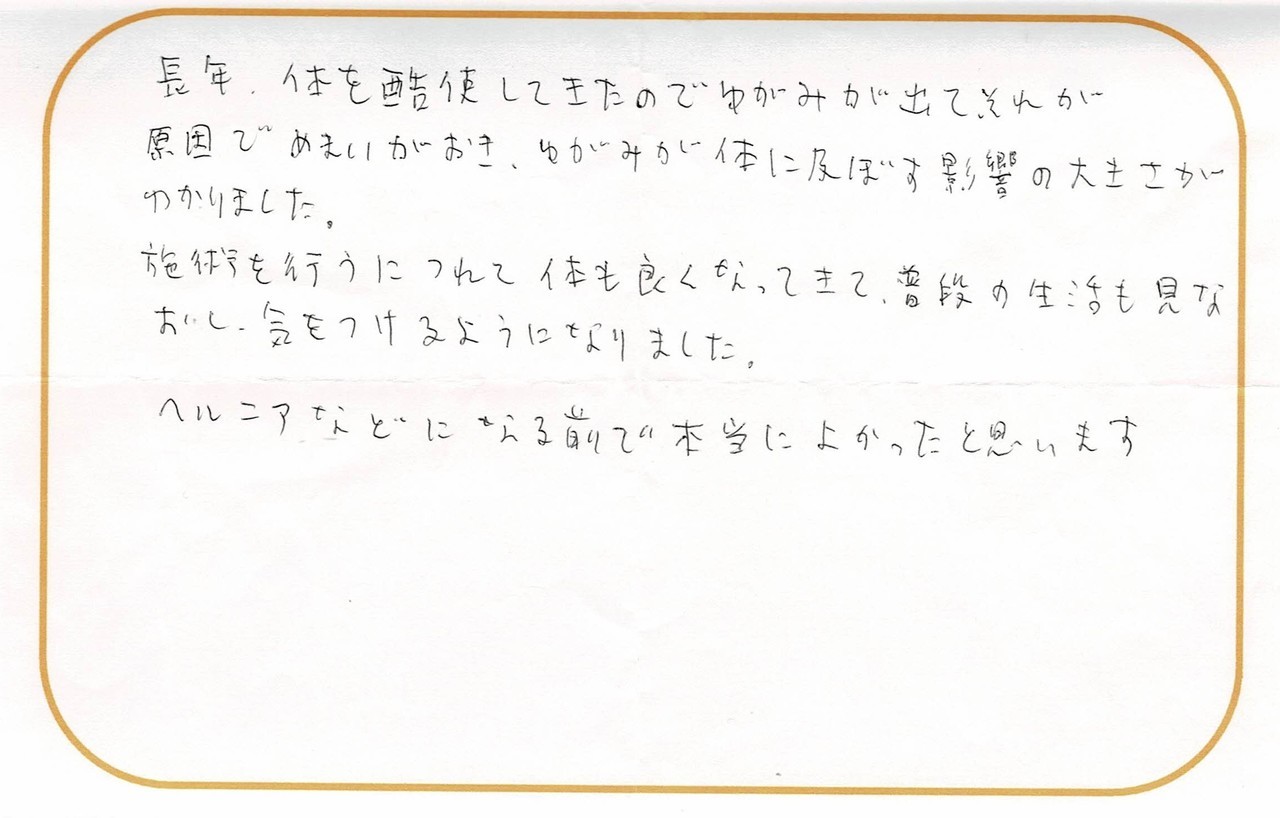 長年、体を酷使してきたのでゆがみが出てそれが
原因でめまいがおき、ゆがみが体に及ぼす影響の大きさが
わかりました。
施術を行うにつれて体も良くなってきて、普段の生活も見な
おし、気をつけるようになりました。
ヘルニアなどになる前で本当によかったと思います